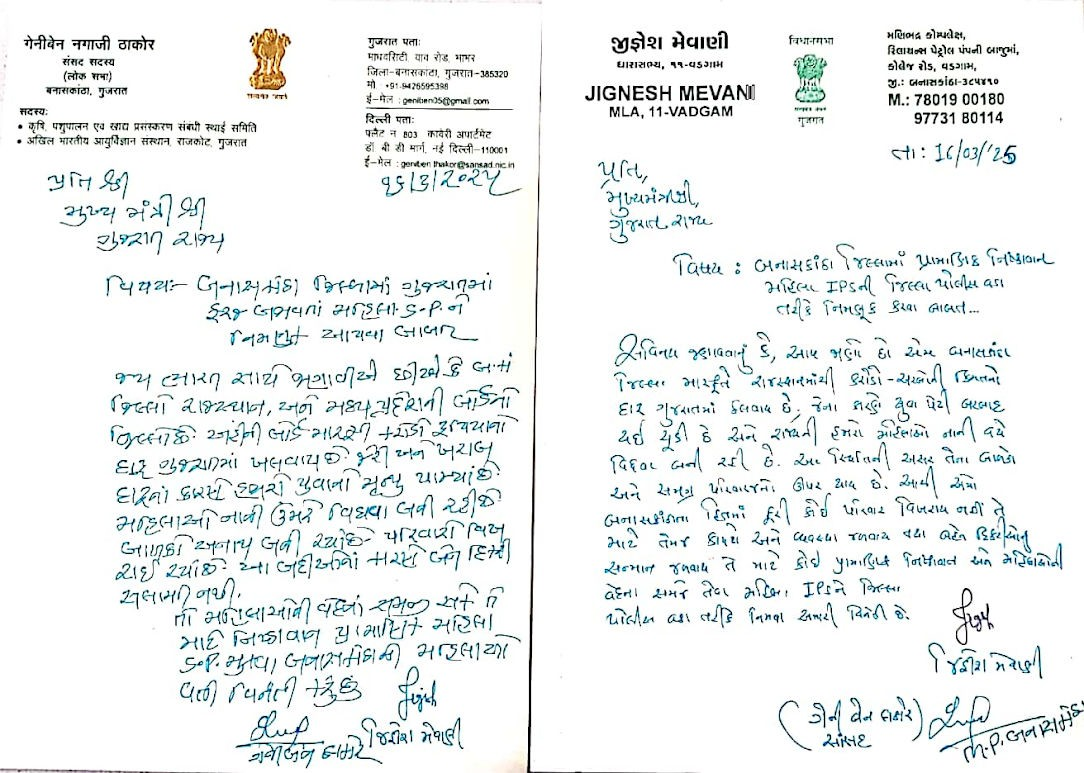 गेनीबेन नगाजी ठाकोर
संसद सदस्य
(लोक सभा)
बनासकांठा, गुजरात
सदस्य:
• कृषि, पशुपालन एवं खाद्य प्रसंस्करण संबंधी स्थाई समिति
• अखिल भारतीय आयुर्विज्ञान संस्थान, राजकोट, गुजरात
गुजरात पता:
माधवसिटी, वाव रोड, भाभर
जिला-बनासकांठा, गुजरात-385320
मो +91-9426595398
ई-मेल : geniben05@gmail.com
दिल्ली पता:
फ्लैट न 803 कावेरी अपार्टमेंट
डॉ बी डी मार्ग, नई दिल्ली-110001
ई-मेल : geniben.thakor@sansad.nic.in
૧૬/૩/૨૦૨૫
પ્રતિ શ્રી
મુખ્ય મંત્રી શ્રી
ગુજરાત રાજ્ય
વિષય:- બનાસકાંઠા જિલ્લામાં ગુજરાતમાં
ફરજ બજાવતાં મહિલા S.P. ને
નિમણુંક આપવા બાબત
જય ભારત સાથે જણાવીએ છીએ કે બ.કાં
જિલ્લો રાજસ્થાન, અને મધ્યપ્રદેશની બોર્ડરનો
જિલ્લો છે. અહીંની બોર્ડર મારફતે કરોડો રૂપિયાનો
દારૂ ગુજરાતમાં ઠલવાય છે. ઝેરી અને ખરાબ
દારૂના કારણે હજારો યુવાનો મૃત્યુ પામ્યાં છે.
મહિલાઓ નાની ઉંમરે વિધવા બની રહી છે
બાળકો અનાથ બની રહ્યાં છે પરિવારો વિખ
રાઈ રહ્યાં છે આ બદીઓના કારણે બેન દિકરી
સલામત નથી.
તો મહિલાઓની વેદના સમજી શકે તે
માટે નિષ્ઠાવાન પ્રમાણિક મહિલા
S.P. મુકવા બનાસકાંઠાની મહિલાઓ
વતી વિનંતી કરું છું
ગેનીબેન ઠાકોર જિજ્ઞેશ મેવાણી
જીજ્ઞેશ મેવાણી
ધારાસભ્ય, ૧૧-વડગામ
JIGNESH MEVANI
MLA, 11-VADGAM
વિધાનસભા
ગુજરાત
મણિભદ્ર કોમ્પલેક્ષ,
રિલાયન્સ પેટ્રોલ પંપની બાજુમાં,
કોલેજ રોડ, વડગામ,
જી.: બનાસકાંઠા-૩૮૫૪૧૦
M.: 78019 00180
97731 80114
તા : 16/03/'25
પ્રતિ,
મુખ્યમંત્રીશ્રી,
ગુજરાત રાજ્ય
વિષય : બનાસકાંઠા જિલ્લામાં પ્રામાણિક નિષ્ઠાવાન
મહિલા IPSની જિલ્લા પોલીસ વડા
તરીકે નિમણૂક કરવા બાબત...
સવિનય જણાવવાનું કે, આપ જાણો છો એમ બનાસકાંઠા
જિલ્લા મારફતે રાજસ્થાનમાંથી કરોડો-અબજોની કિંમતનો
દારૂ ગુજરાતમાં ઠલવાય છે. જેના કારણે યુવા પેઢી બરબાદ
થઈ ચૂકી છે અને રાજ્યની હજારો મહિલાઓ નાની વયે
વિધવા બની રહી છે. આ સ્થિતિની અસર તેના બાળકો
અને સમગ્ર પરિવારજનો ઉપર થાય છે. આથી અમો
બનાસકાંઠાના હિતમાં ફરી કોઈ પરિવાર વિખરાય નહીં તે
માટે તેમજ કાયદો અને વ્યવસ્થા જળવાય તથા બહેન દિકરીઓનું
સન્માન જળવાય તે માટે કોઈ પ્રામાણિક નિષ્ઠાવાન અને મહિલાઓની
વેદના સમજે તેવા મહિલા IPSને જિલ્લા
પોલીસ વડા તરીકે નિમવા અમારી વિનંતી છે.
જિજ્ઞેશ મેવાણી
(ગેની બેન ઠાકોર)
સાંસદ
M.P. બનાસકાંઠા